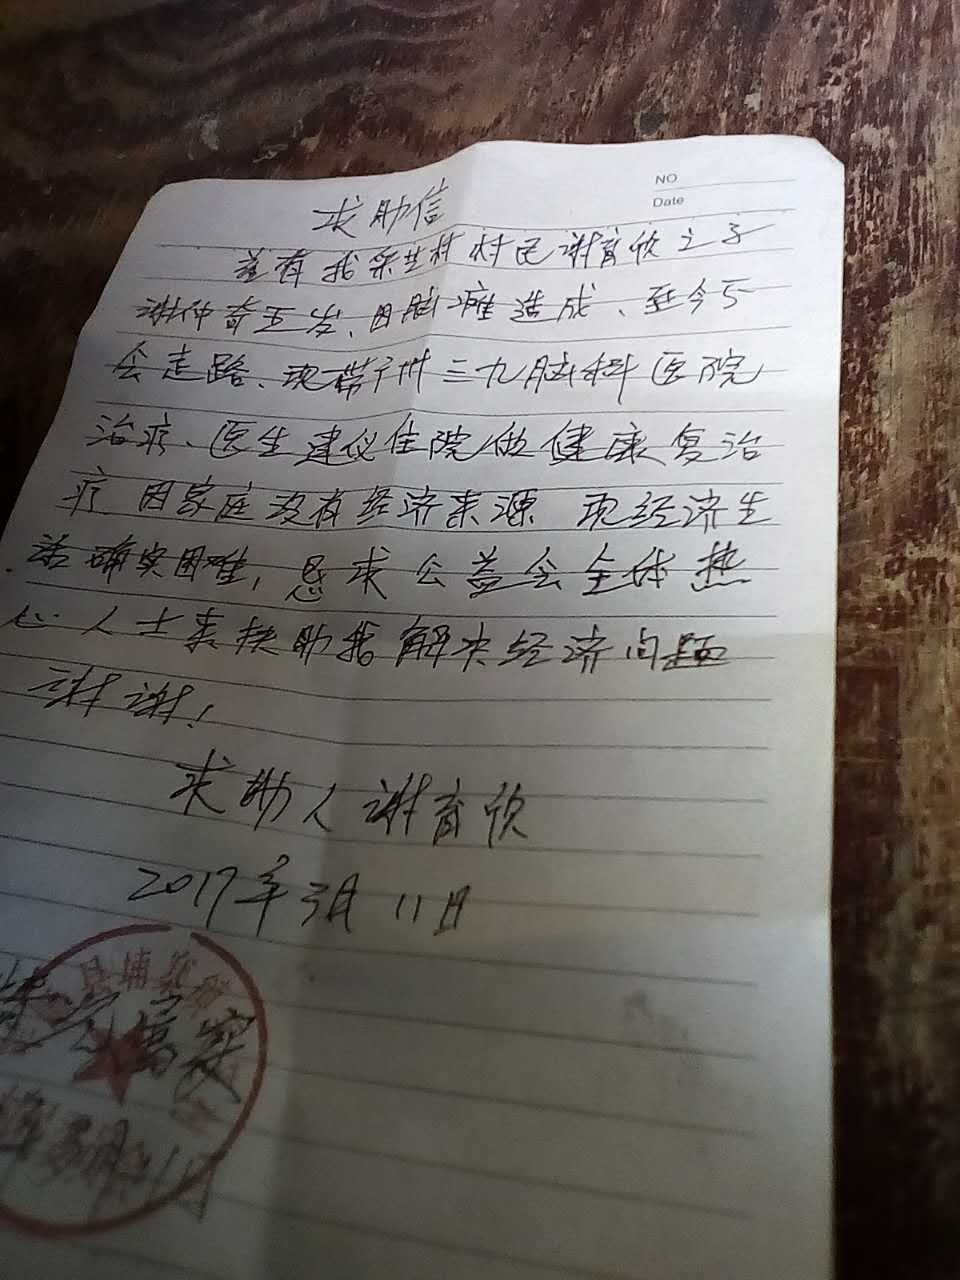 NO
Date
求助信
兹有我采芝村村民谢育欣之子
谢仲奇五岁、因脑瘫造成、至今不
会走路、现带广州三九脑科医院
治疗、医生建议住院做健康复治
疗 因家庭没有经济来源 现经济生
活确实困难，恳求公益会全体热
心人士来扶助我解决经济问题
谢谢！
求助人 谢育欣
2017年3月11日
县埔
情况属实